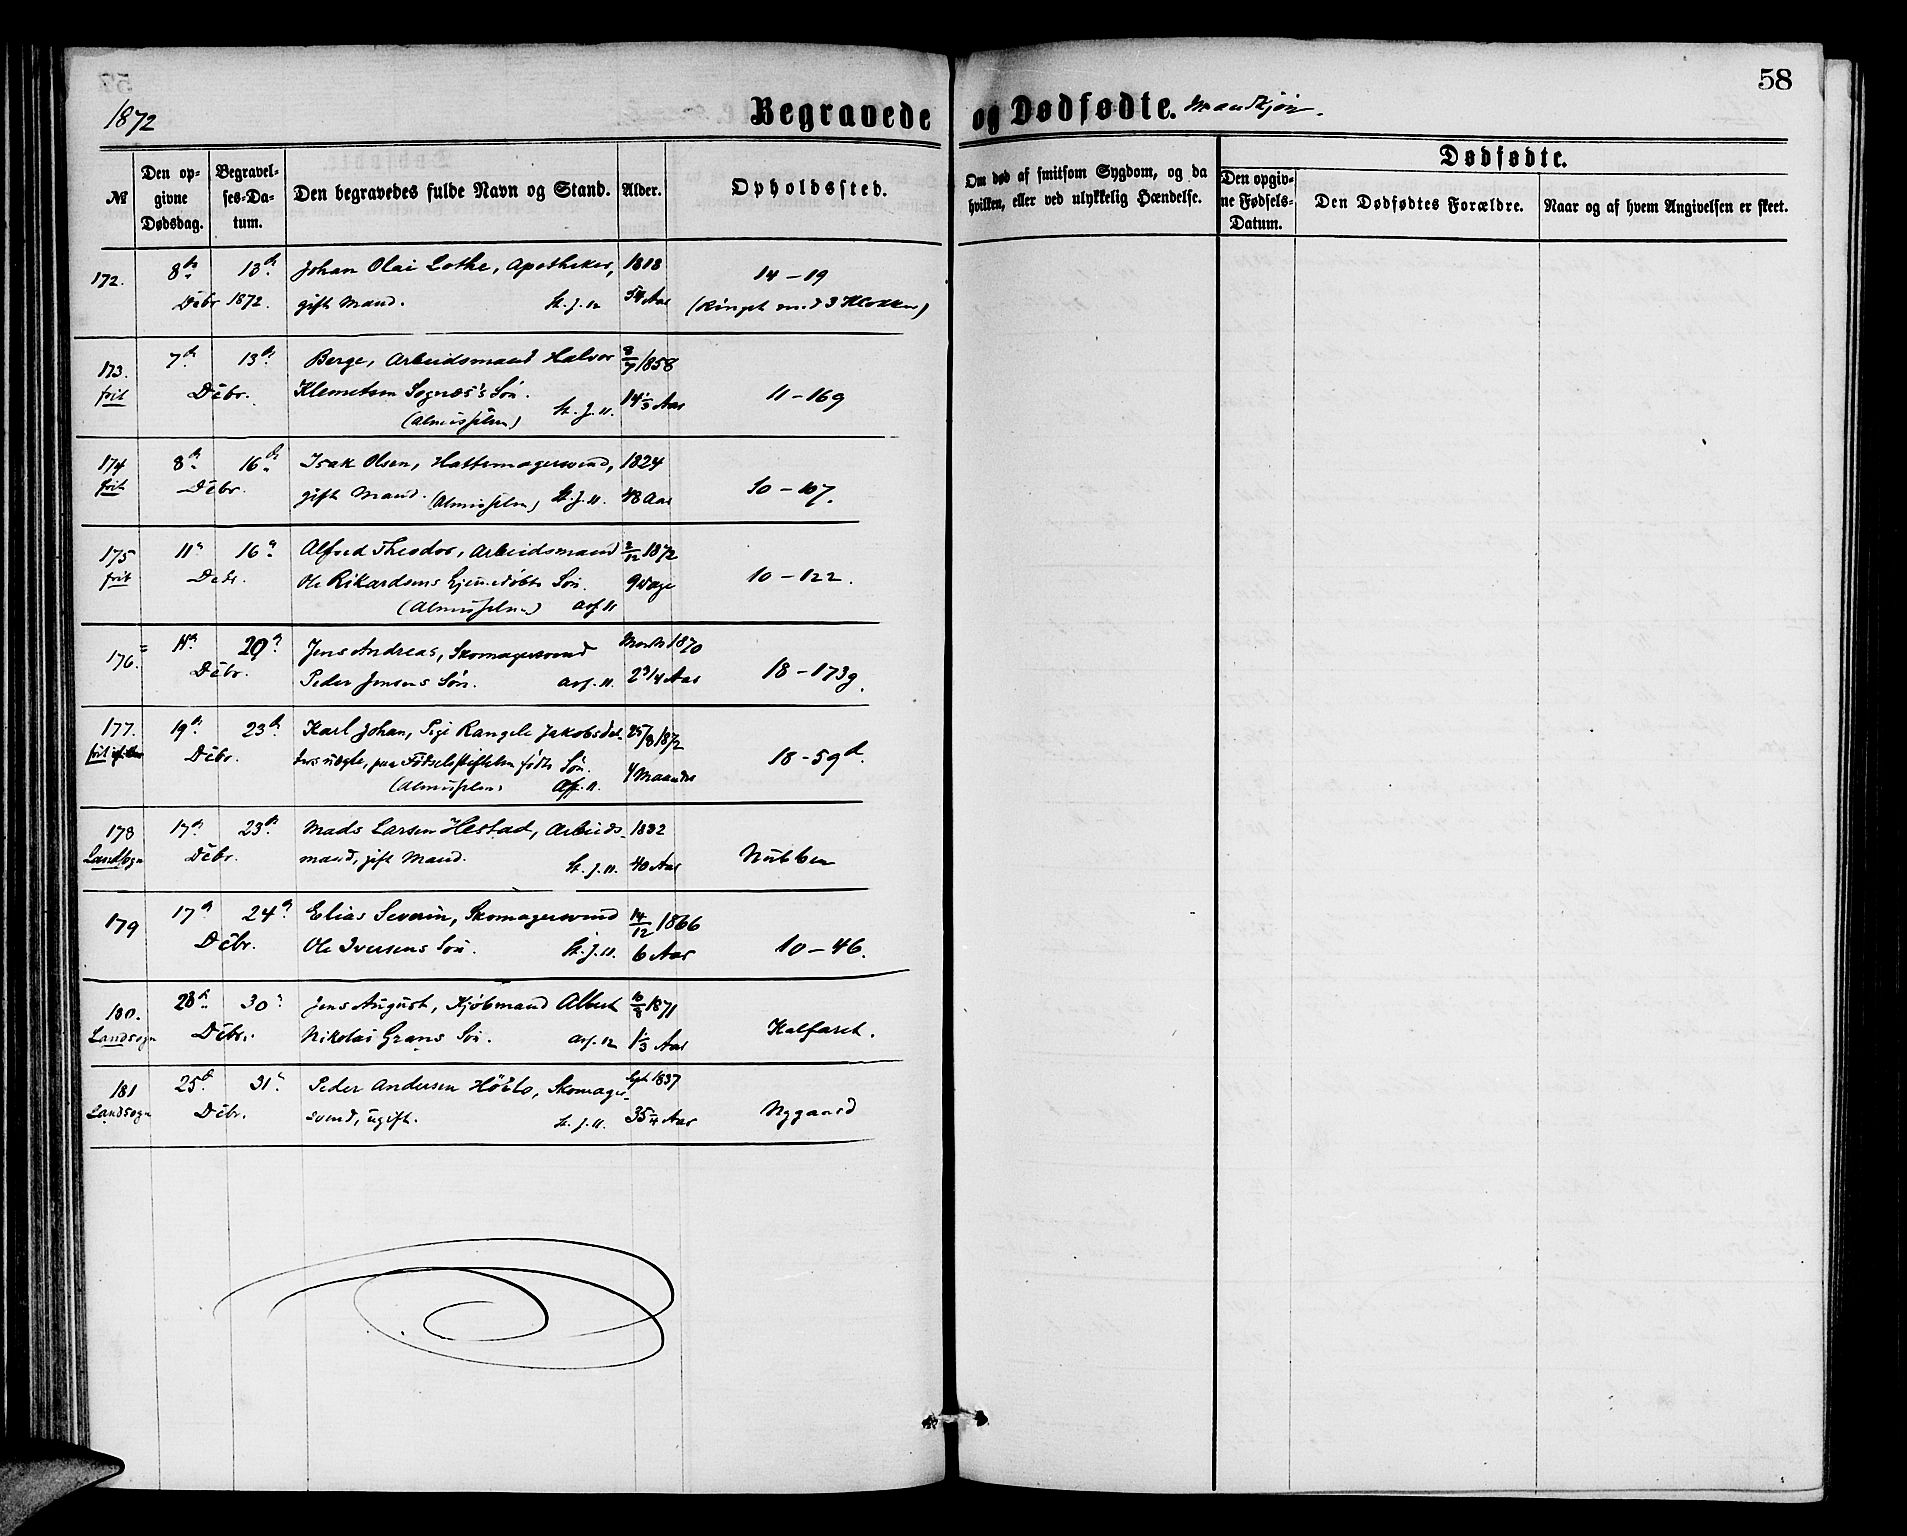 58
1872
Begravede og Dødfødte. Mandkjøn.
№
Den opgivne Dødsdag.
Begravelses-Datum.
Den begravedes fulde Navn og Stand.
Alder.
Opholdssted.
Om død af smitsom Sygdom, og da hvilken, eller ved ulykkelig Hændelse.
Dødfødte.
Den opgivne Fødsels-Datum.
Den Dødfødtes Forældre.
Naar og af hvem Angivelsen er skeet.
172. 8de 13de Johan Olai Lothe, Apotheker, 1818 14-19
Dēbr 1872. gift Mand. St. J. 12 54 Aar (Ringet med 3 Klokker)
173. 7de 13de Berge, Arbeidsmand Halvor 8/7 1858
frit Dēbr. Klemetsen Sognæs's Søn. 14 1/3 Aar 11-169
(Almisselem) St. J. 11.
174 8de 16de Isak Olsen, Hattemagersvend, 1824
frit Dēbr. gift Mand. (Almisselem) St. J. 11. 48 Aar 10-107.
175 11te 16de Alfred Theodor, Arbeidsmand 2/12 1872
frit Debr. Ole Rikardsens hjemmedøbte Søn. 9 Dage 10-122.
(Almisselem)
176. 20de Jens Andreas, Skomagersvend Marts 1870
Dēbr. Peder Jensens Søn. 2 3/4 Aar 18-173g.
177. 19de 23de Karl Johan, Pige Rangele Jakobsdat- 25/8 1872
frit Dēbr. ters uægte, paa Fødselsstiftelsen født Søn. 4 Maaneder 18-59d.
(Almisselem)
178 17de 23de Mads Larsen Hestad, Arbeids- 1832
Landsogn Dēbr. mand, gift Mand. St. J. 11. 40 Aar Nubben
179 17de 24de Elias Severin, Skomagersvend 14/12 1866
Dēbr. Ole Iversens Søn. St. J. 11. 6 Aar 10-46.
180. 28de 30te Jens August, Kjøbmand Albert 1871
Landsogn Dēbr. Nikolai Grans Søn. 1 1/3 Aar Kalfaret.
181 25de 31te Peder Andersen Skomager- Sept. 1837
Landsogn Dēbr. svend, ugift. St. J. 11. 35 1/4 Aar Nygaard